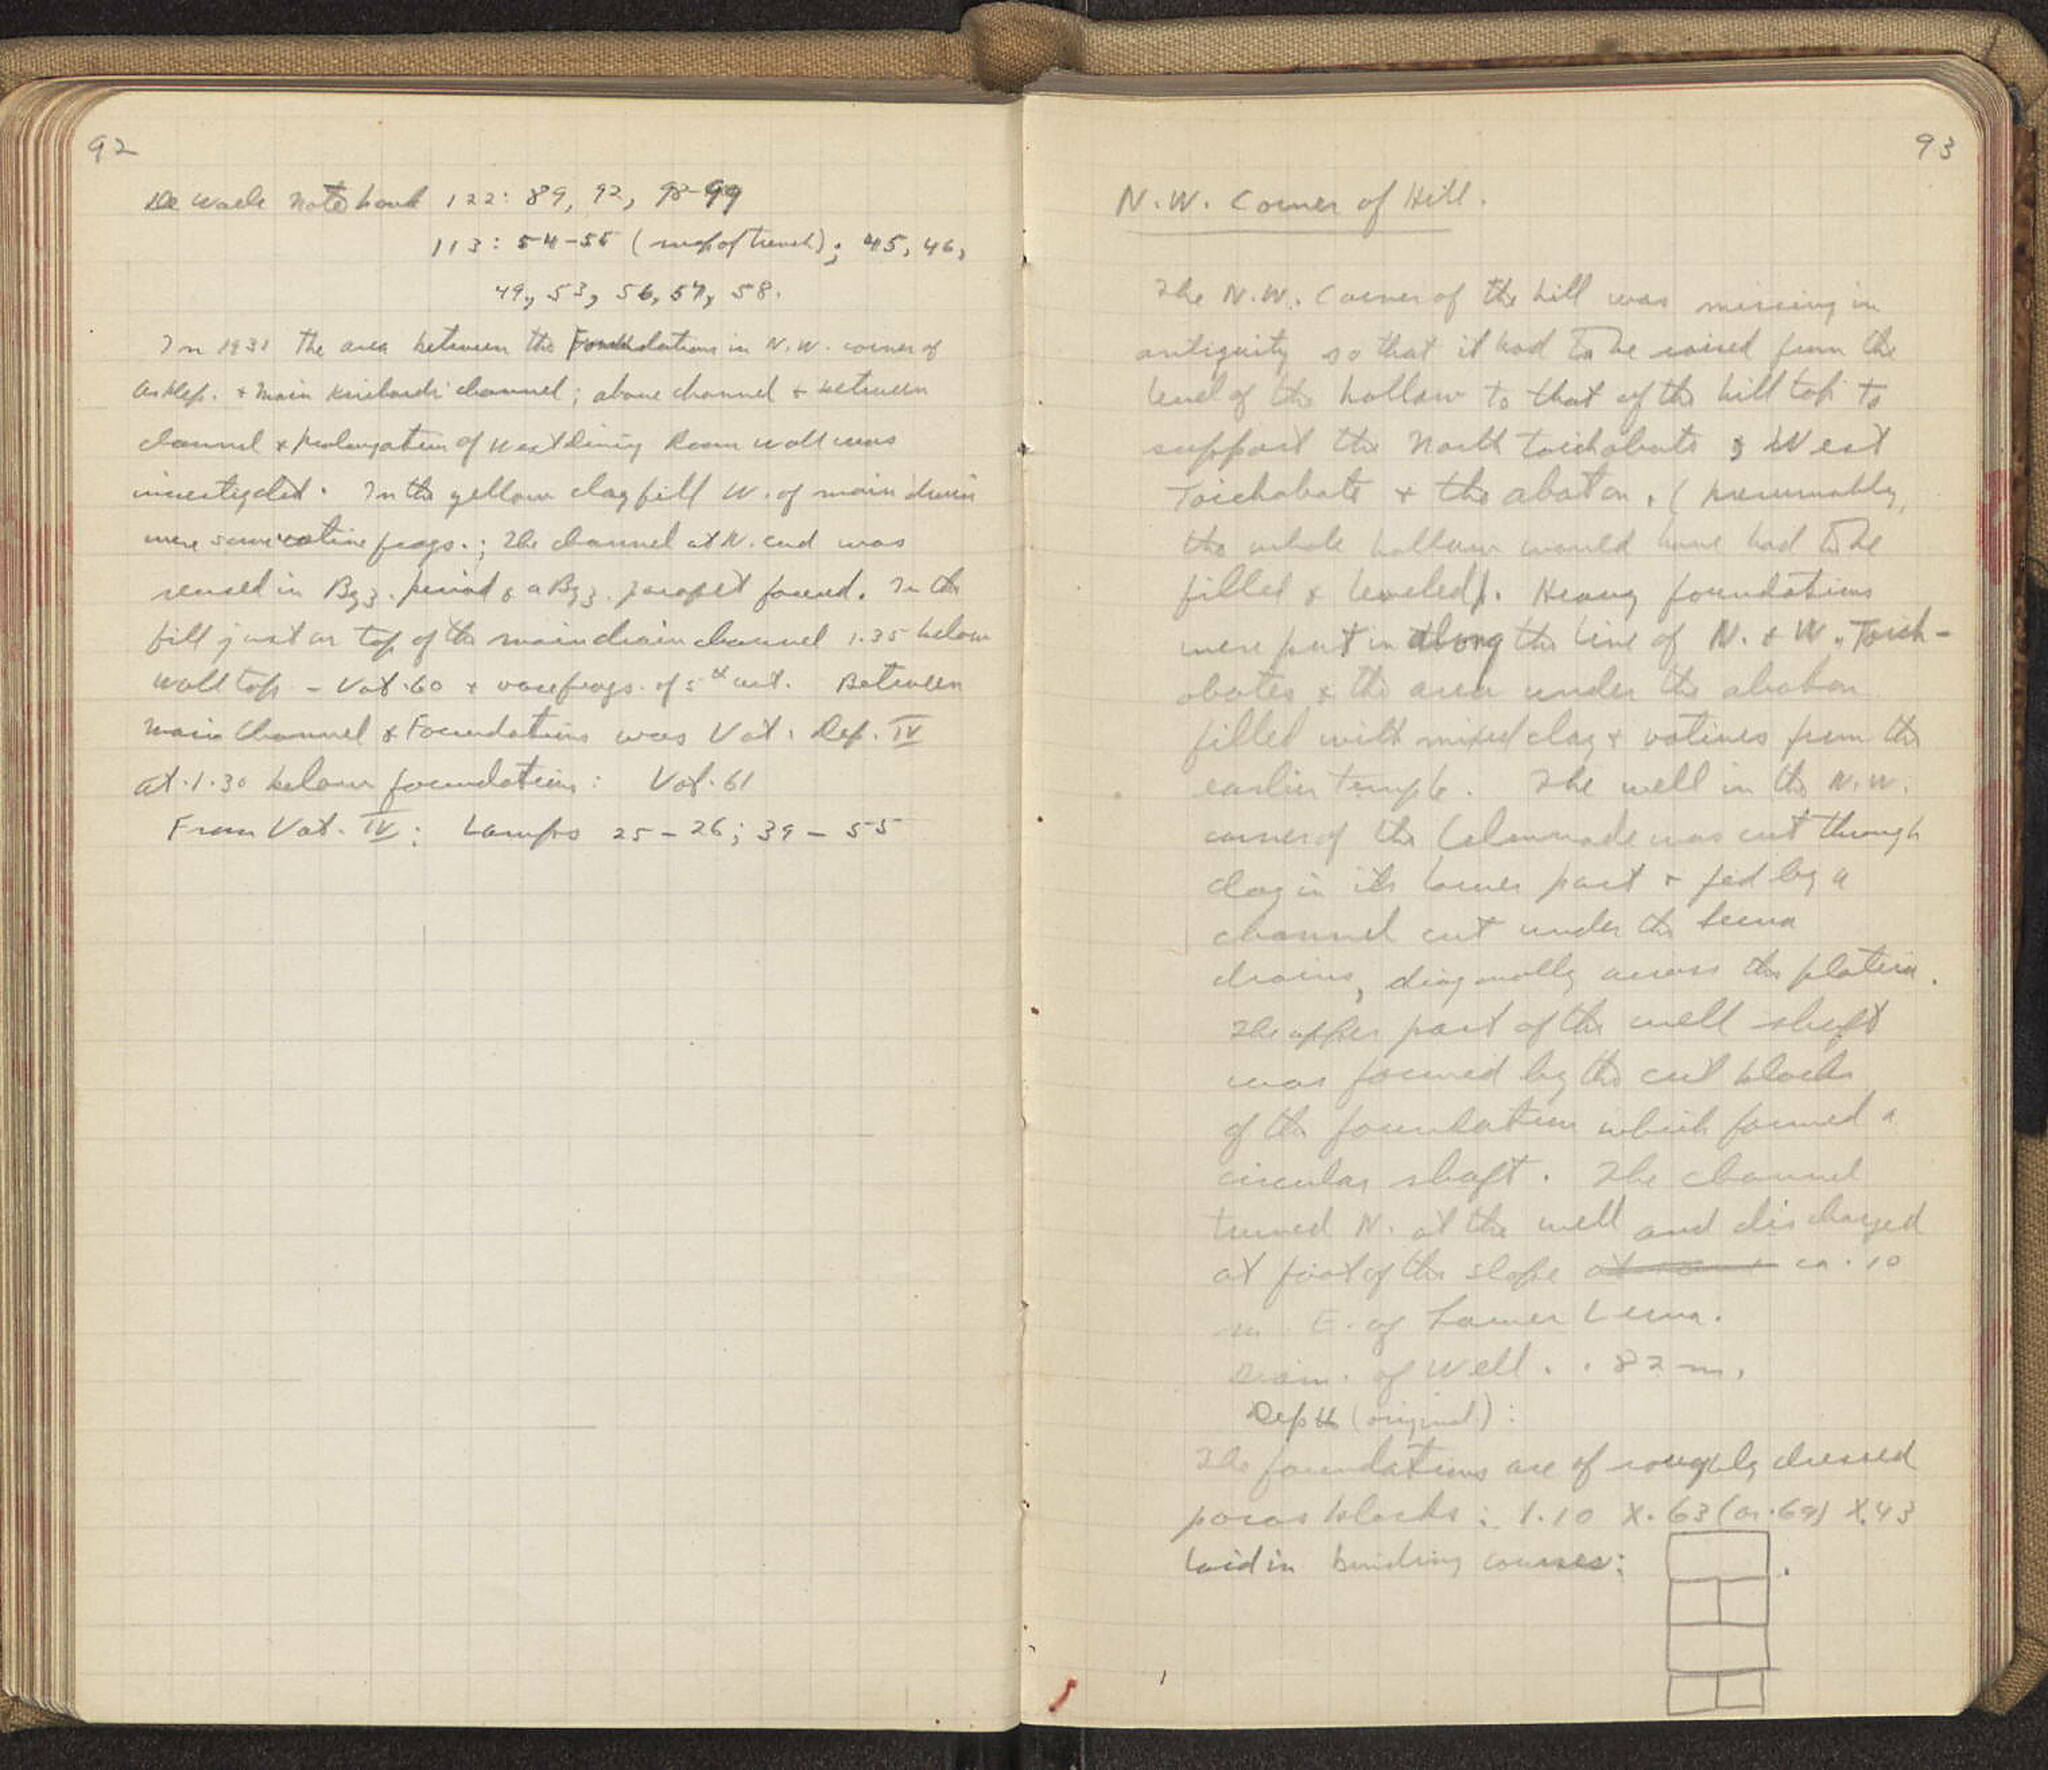 92
De Waele Notebook 122: 89, 92, 98-99
113: 54-55 (map of trench); 45, 46,
49, 53, 56, 57, 58.
In 1931 the area between the Foundations in N.W. corner of
Asklep. + main channel; above channel + between
channel + prolongation of West Dining Room wall was
investigated. In the yellow clay fill W. of main drain
were some votive frags.; The channel at N. end was
reused in Byz. period & a Byz. parapet found. In the
fill just on top of the main drain channel 1.35 below
wall top - Vot. 60 + vase frags. of 5th cent. Between
Main Channel & Foundations was Vot. Dep. IV
at .1.30 below foundations: Vot. 61
From Vot. IV: Lamps 25-26; 39-55
93
N.W. Corner of Hill.
The N.W. Corner of the hill was missing in
antiquity so that it had to be raised from the
level of the hollow to that of the hill top to
support the North toichobate & West
Toichobate + the abaton. (Presumably,
the whole hollow would have had to be
filled & leveled). Heavy foundations
were put in along the line of N. & W. Toich-
obates & the area under the abaton
filled with mixed clay + votives from the
earlier temple. The well in the N.W.
corner of the Colonnade was cut through
clay in its lower part + fed by a
channel cut under the Lerna
drains, diagonally across the plateia.
The upper part of the well shaft
was formed by the cut blocks
of the foundation which formed a
circular shaft. The channel
turned N. at the well and discharged
at foot of the slope ca. 10
m. E. of Lower Lerna.
Diam. of Well. .82 m.
Depth (original):
The foundations are of roughly dressed
poros blocks: 1.10 X .63 (or .69) X .43
laid in binding courses: